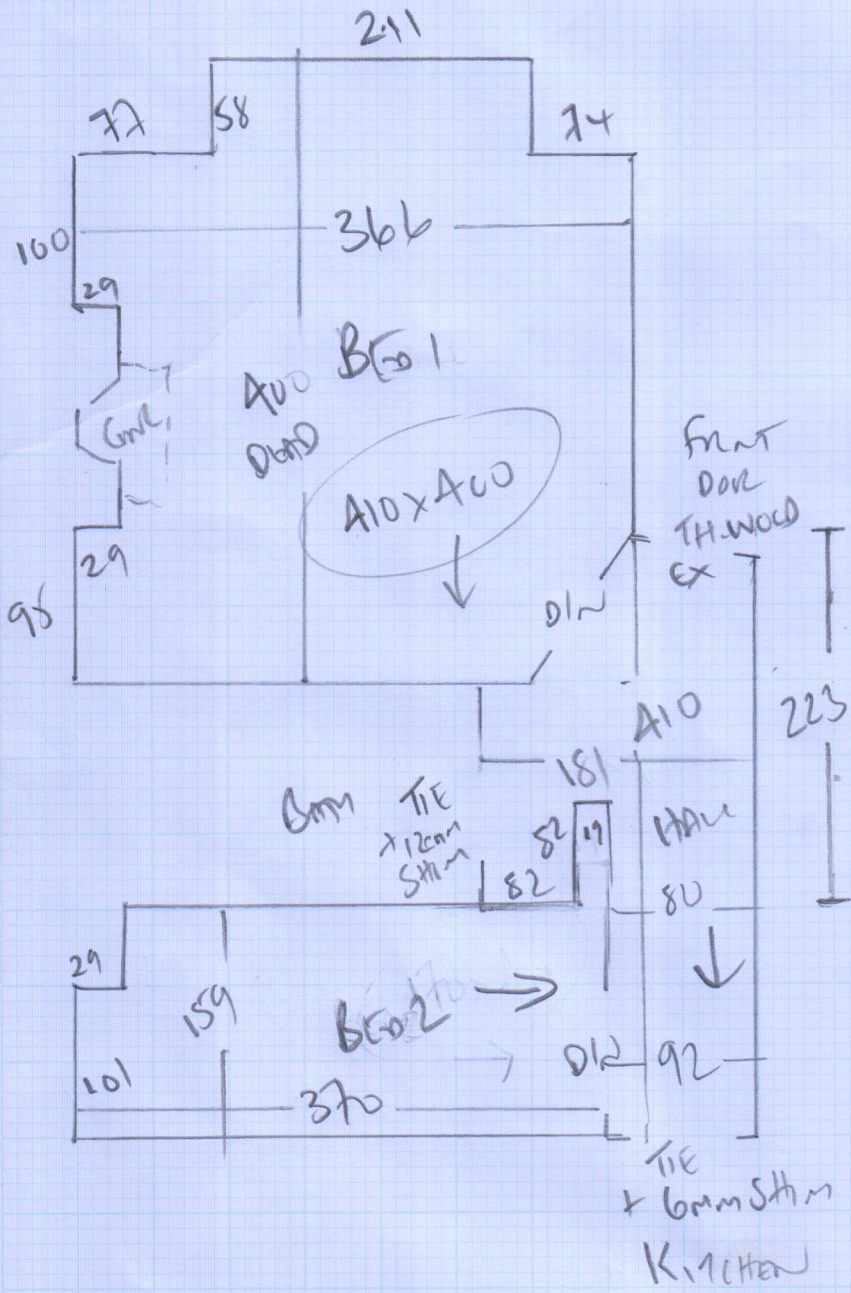 2.11
77
58
74
100
366
29
BED 1
400
DEAD
410 x 400
FRNT
DOOR
EX
29
98
DIN
410
223
181
BATH
TIE
+ 12mm
SHIM
82
19
HALL
82
80
29
159
BED 2
DIN
92
101
370
TIE
+ 6mm SHIM
KITCHEN